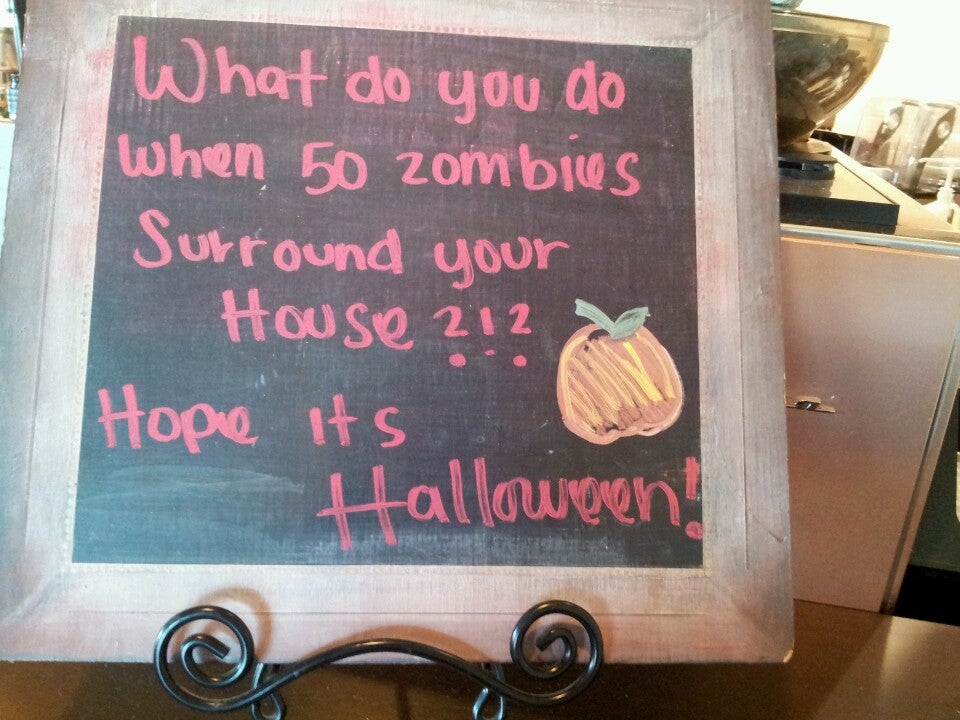 What do you do
when 50 zombies
Surround your
House ?!?
Hope its
Halloween!